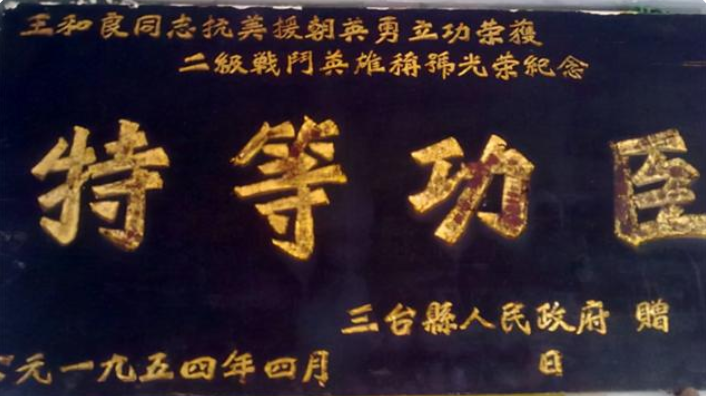 王和良同志抗美援朝英勇立功荣獲
二級戰鬥英雄稱號光荣紀念
特等功臣
三台縣人民政府 贈
元一九五四年四月 日